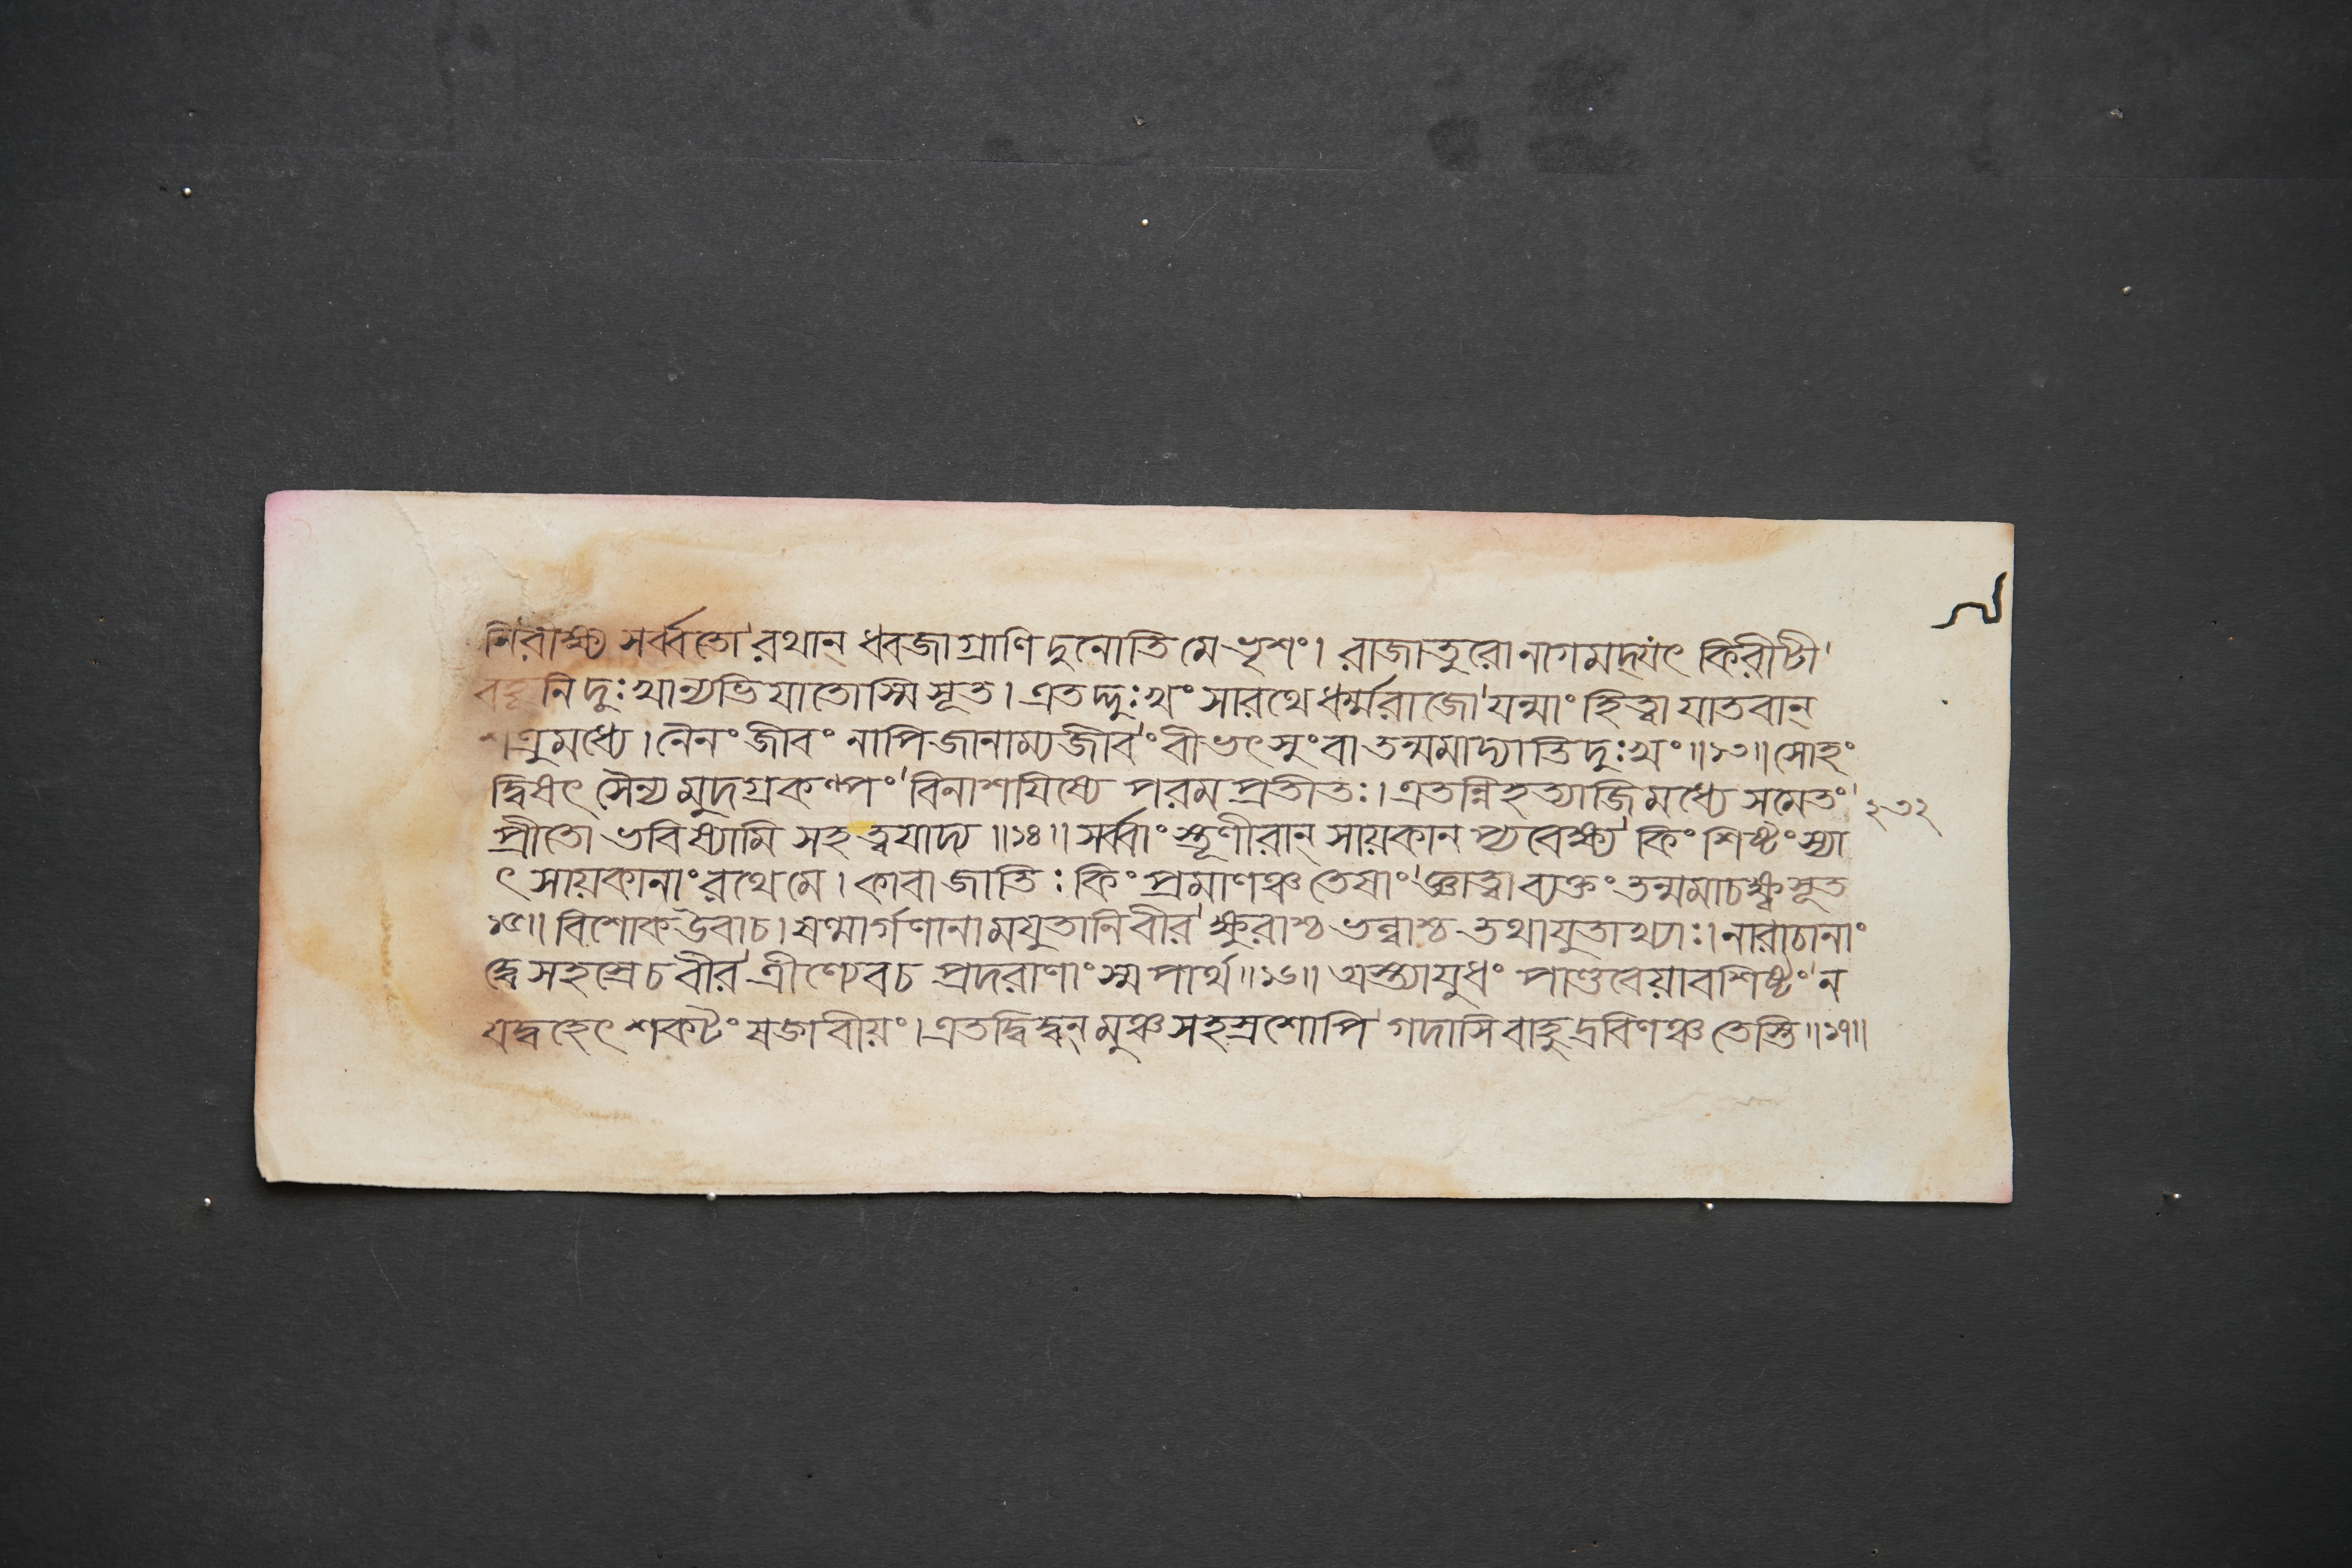 নিরীক্ষ্য সর্ব্বতো'রথান্ ধ্বজাগ্রাণি দুনোতি মে ভৃশং। রাজাতুরো নাগমদ্যৎ কিরীটী'
বহূনি দুঃখান্যভিযাতোস্মি সূত। এতদ্দুঃখং সারথে ধর্ম্মরাজো'যন্মাং হিত্বা যাতবান্
শত্রুমধ্যে। নৈনং জীবং নাপি জানাম্যজীবং'বীভৎসুং বা তন্মমাদ্যাতিদুঃখং॥১৩॥ সোহং
দ্বিষৎ সৈন্যমুদগ্রকল্পং'বিনাশযিষ্যে পরমপ্রতীতঃ। এতন্নিহত্যাজিমধ্যে সমেতং'
২৩২
প্রীতো ভবিষ্যামি সহ ত্বযাদ্য॥১৪॥ সর্ব্বাং স্তূণীরান্ সায়কানপ্যবেক্ষ্য'কিং শিষ্টং স্যা
ৎ সায়কানাং রথে মে। কা বা জাতিঃ কিং প্রমাণঞ্চ তেষাং'জ্ঞাত্বা ব্যক্তং তন্মমাচক্ষ্ব সূত
১৫॥ বিশোক উবাচ। ষণ্মার্গণানামযুতানি বীর'ক্ষুরাশ্চ ভল্লাশ্চ তথাযুতাখ্যাঃ। নারাচানাং
দ্বে সহস্রে চ বীর'ত্রীণ্যেব চ প্রদরাণাং স্ম পার্থ॥১৬॥ অস্ত্যাযুধং পাণ্ডবেয়াবশিষ্টং'ন
যদ্বহেৎ শকটং ষড্গবীয়ং। এতদ্বিদ্বন্ মুঞ্চ সহস্রশোপি'গদাসিবাহুদ্রবিণঞ্চ তেস্তি॥১৭॥